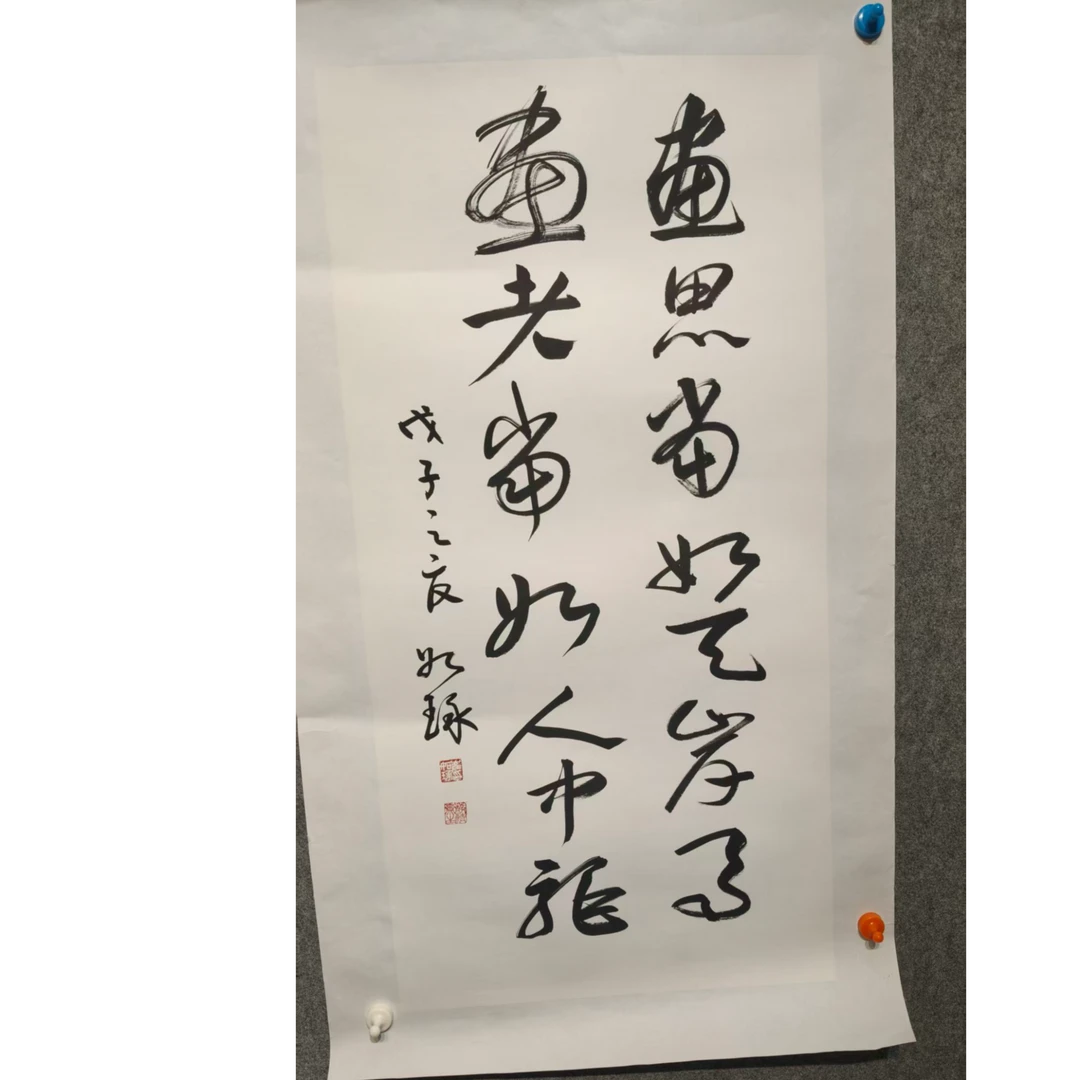 畫思當如天岸馬
畫老當如人中龍
戊子之夏 如琢